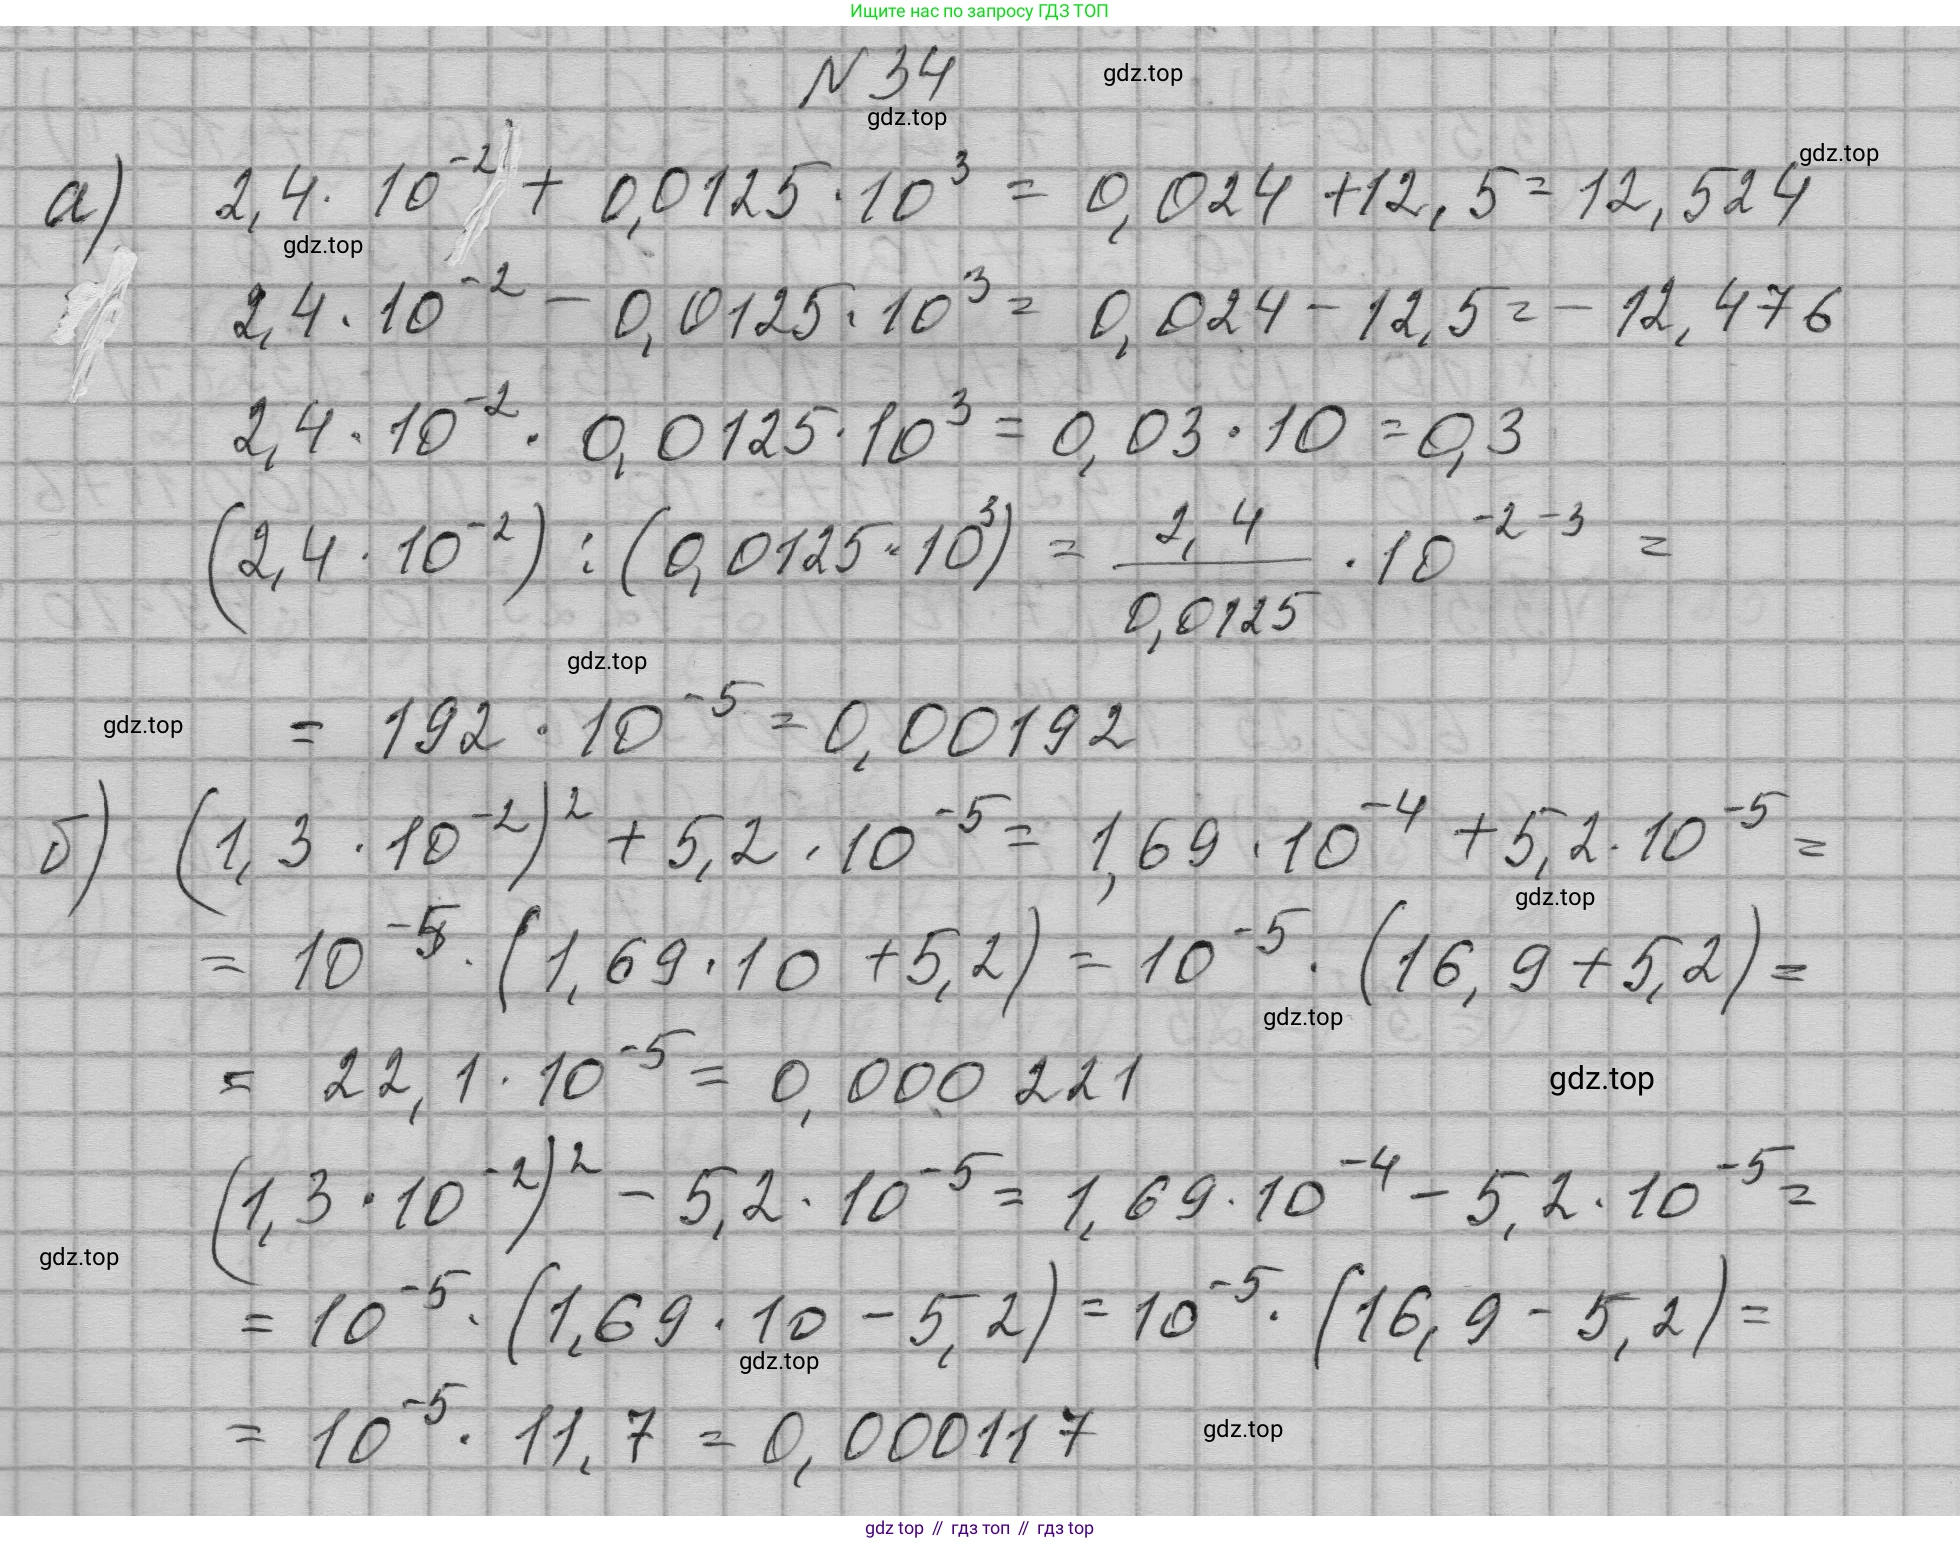 Ищите нас по запросу ГДЗ ТОП
N 34
gdz.top
gdz.top
gdz.top
а) 2,4 · 10⁻² + 0,0125 · 10³ = 0,024 + 12,5 = 12,524
gdz.top
2,4 · 10⁻² − 0,0125 · 10³ = 0,024 − 12,5 = − 12,476
2,4 · 10⁻² · 0,0125 · 10³ = 0,03 · 10 = 0,3
(2,4 · 10⁻²) : (0,0125 · 10³) = 2,4/0,0125 · 10⁻²⁻³ =
gdz.top
gdz.top
= 192 · 10⁻⁵ = 0,00192
б) (1,3 · 10⁻²)² + 5,2 · 10⁻⁵ = 1,69 · 10⁻⁴ + 5,2 · 10⁻⁵ =
gdz.top
= 10⁻⁵ · (1,69 · 10 + 5,2) = 10⁻⁵ · (16,9 + 5,2) =
gdz.top
= 22,1 · 10⁻⁵ = 0,000221
gdz.top
(1,3 · 10⁻²)² − 5,2 · 10⁻⁵ = 1,69 · 10⁻⁴ − 5,2 · 10⁻⁵ =
gdz.top
= 10⁻⁵ · (1,69 · 10 − 5,2) = 10⁻⁵ · (16,9 − 5,2) =
gdz.top
= 10⁻⁵ · 11,7 = 0,000117
gdz.top
gdz top // гдз топ // гдз top